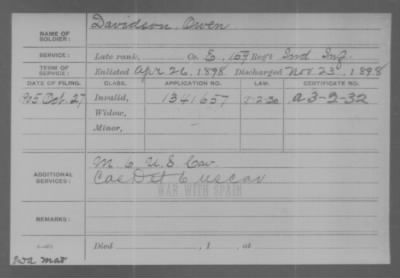 Davidson, Owen
NAME OF SOLDIER:
SERVICE: Late rank, Co E, 159 Reg't Ind Inf.
TERM OF SERVICE: Enlisted Apr 26, 1898 Discharged Nov 23, 1898
DATE OF FILING. CLASS. APPLICATION NO. LAW. CERTIFICATE NO.
Oct. 27 Invalid, 1341657 a-3-2-32
Widow,
Minor,
ADDITIONAL SERVICES:
M 6 U.S Cav
Cas Det 6 US Cav
WAR WITH SPAIN
REMARKS:
Died , 1 , at